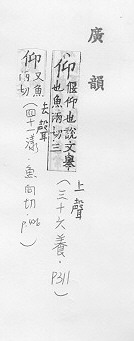 廣韻
仰 偃仰也說文舉
也魚兩切三
上聲
(三十六養·P311
仰 又魚
向切
去聲
(四十一漾·魚向切·P.426)